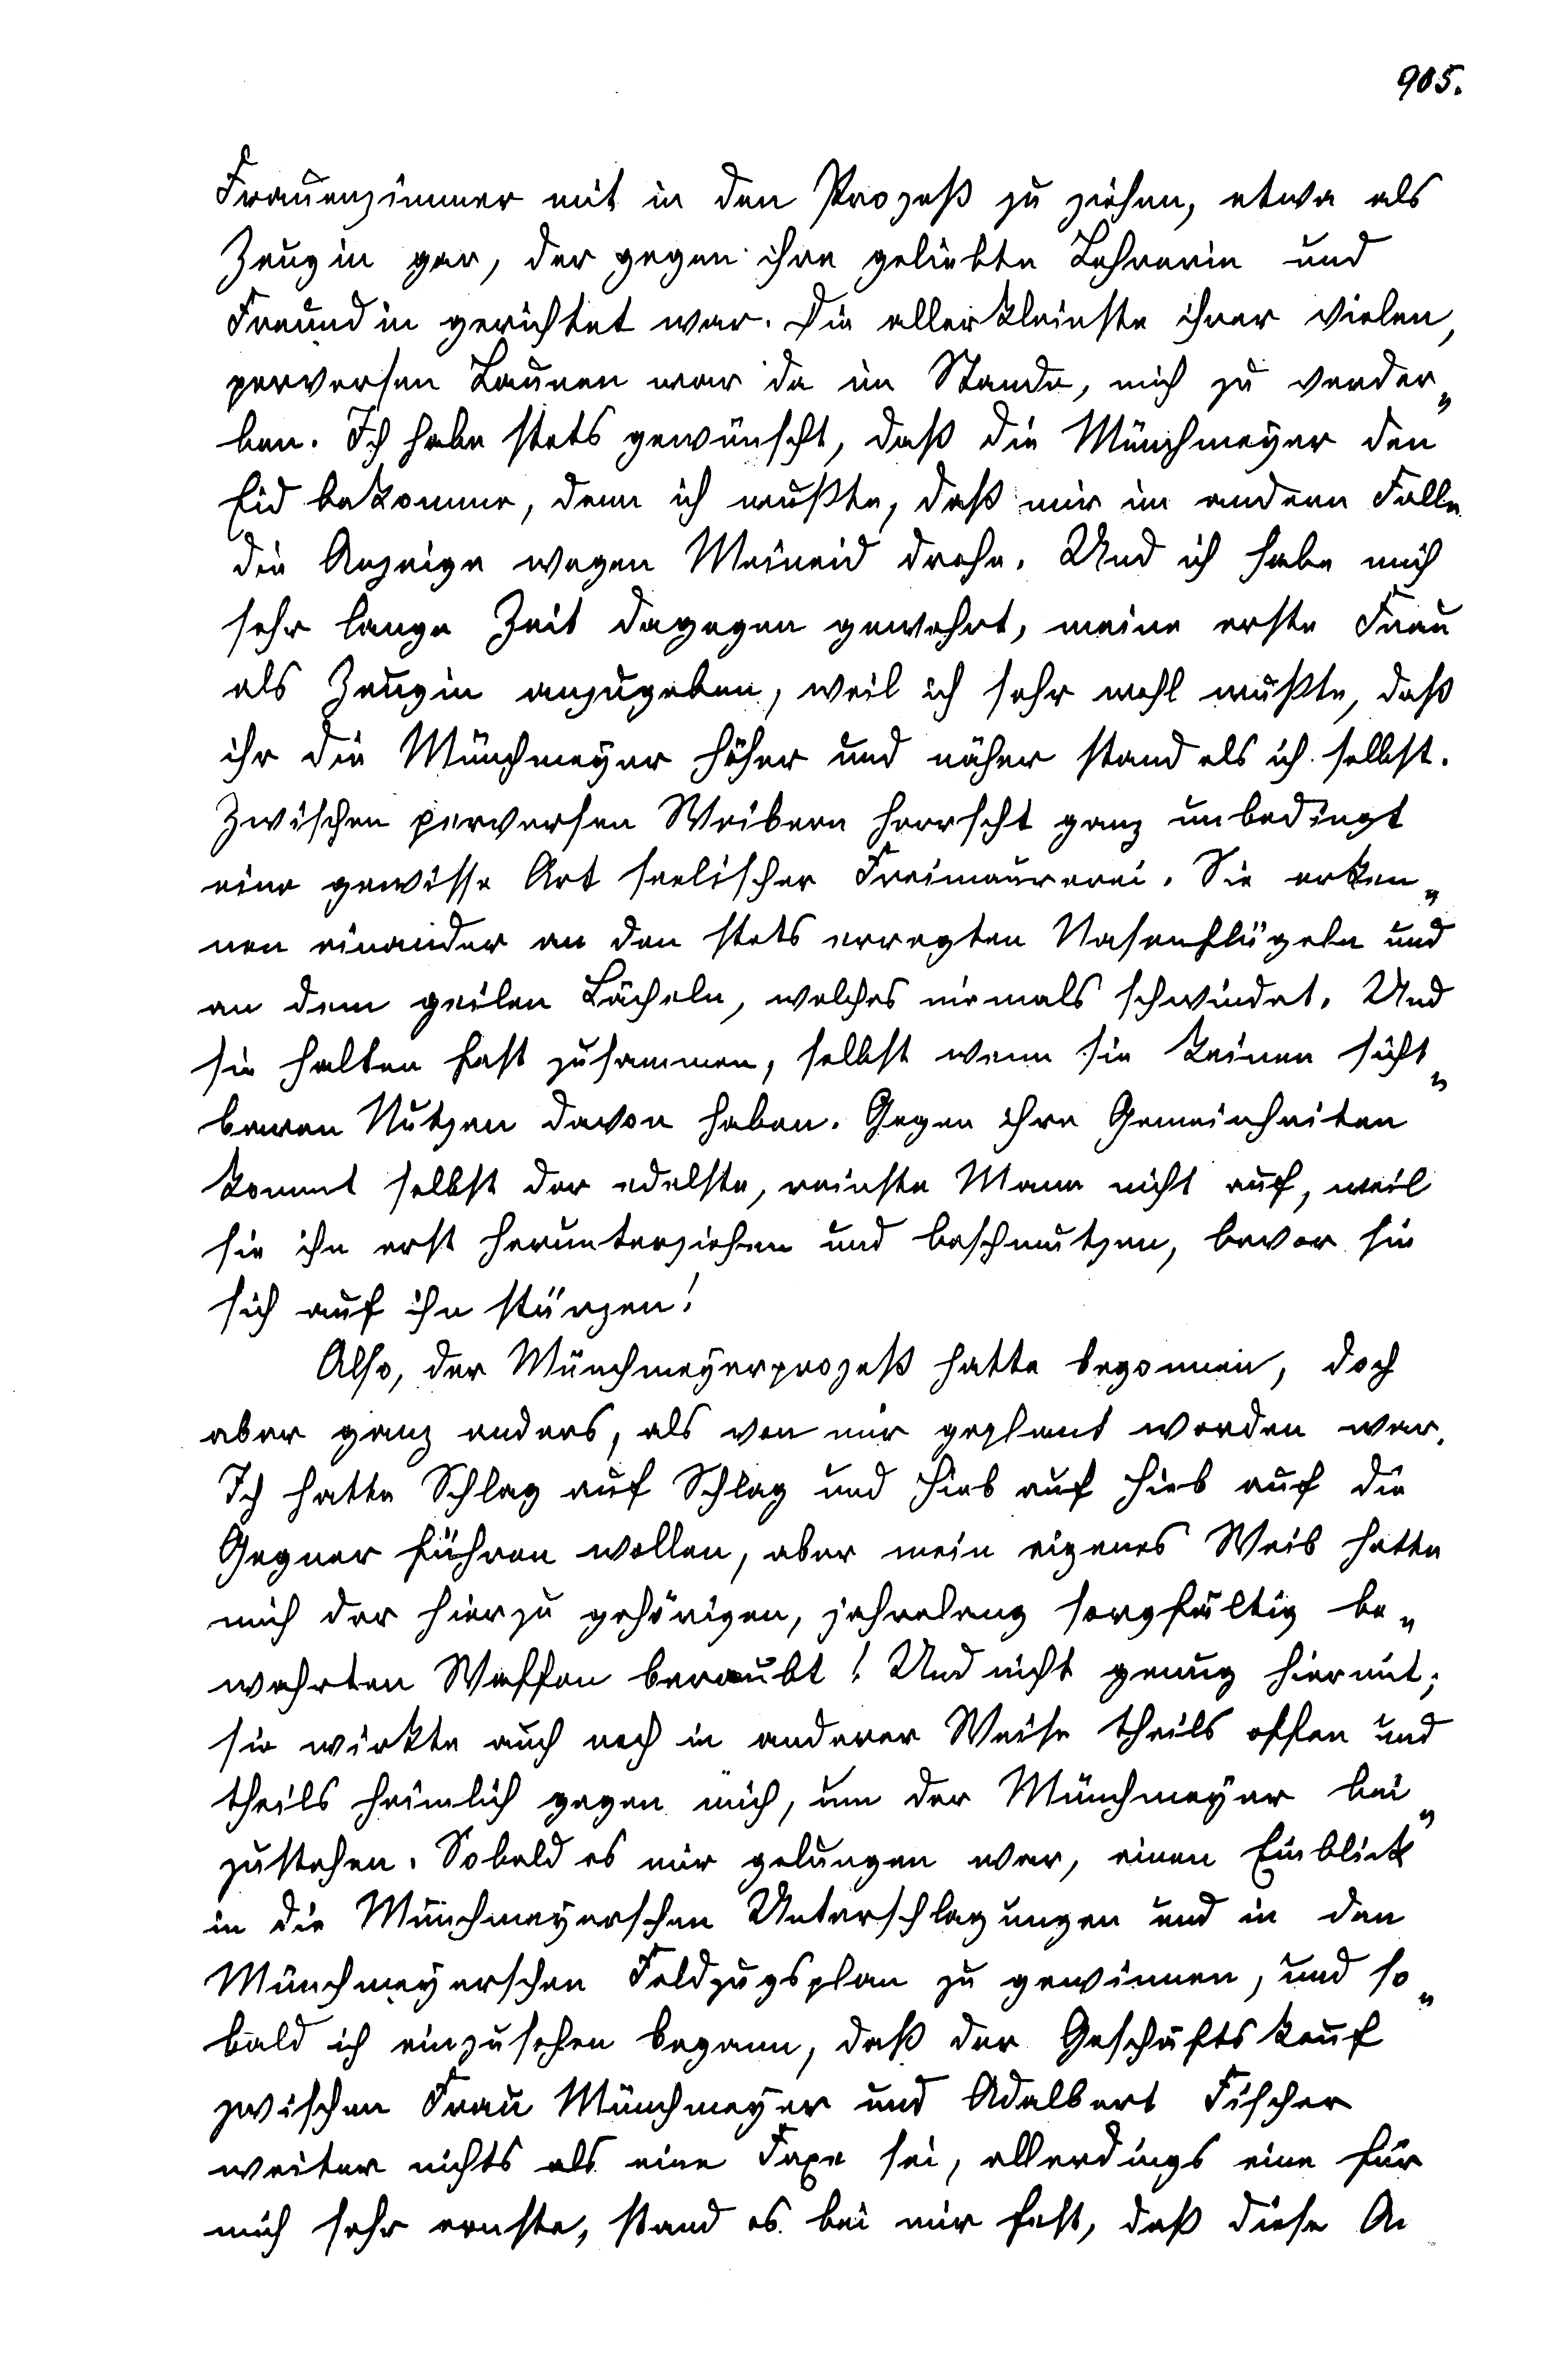 905.
Frauenzimmer mit in den Prozeß zu ziehen, etwa als
Zeugin gar, der gegen ihre geliebte Lehrerin und
Freundin gerichtet war. Die allerkleinste ihrer vielen,
perversen Launen war da im Stande, mich zu verder„
ben. Ich habe stets gewünscht, daß die Münchmeyer den
Eid bekomme, denn ich wußte, daß mir im andern Falle
die Anzeige wegen Meineid drohe. Und ich habe mich
sehr lange Zeit dagegen gewehrt, meine erste Frau
als Zeugin anzugeben, weil ich sehr wohl wußte, daß
ihr die Münchmeyer höher und näher stand als ich selbst.
Zwischen perversen Weibern herrscht ganz unbedingt
eine gewisse Art seelischer Freimaurerei. Sie erken„
nen einander an den stets erregten Nasenflügeln und
an dem geilen Lächeln, welches niemals schwindet. Und
sie halten fest zusammen, selbst wenn sie keinen sicht„
baren Nutzen davon haben. Gegen ihre Gemeinheiten
kommt selbst der edelste, reinste Mann nicht auf, weil
sie ihn erst herunterziehen und beschmutzen, bevor sie
sich auf ihn stürzen!
Also, der Münchmeyerprozeß hatte begonnen, doch
aber ganz anders, als von mir geplant worden war.
Ich hatte Schlag auf Schlag und Hieb auf Hieb auf die
Gegner führen wollen, aber mein eigenes Weib hatte
mich der hierzu gehörigen, jahrelang sorgfältig be„
wahrten Waffen beraubt! Und nicht genug hiermit;
sie wirkte auch noch in anderer Weise theils offen und
theils heimlich gegen mich, um der Münchmeyer bei„
zustehen. Sobald es mir gelungen war, einen Einblick
in die Münchmeyerschen Unterschlagungen und in den
Münchmeyerschen Feldzugsplan zu gewinnen, und so„
bald ich einzusehen begann, daß der Geschäftskauf
zwischen Frau Münchmeyer und Adalbert Fischer
weiter nichts als eine Faxe sei, allerdings eine für
mich sehr ernste, stand es bei mir fest, daß diese An